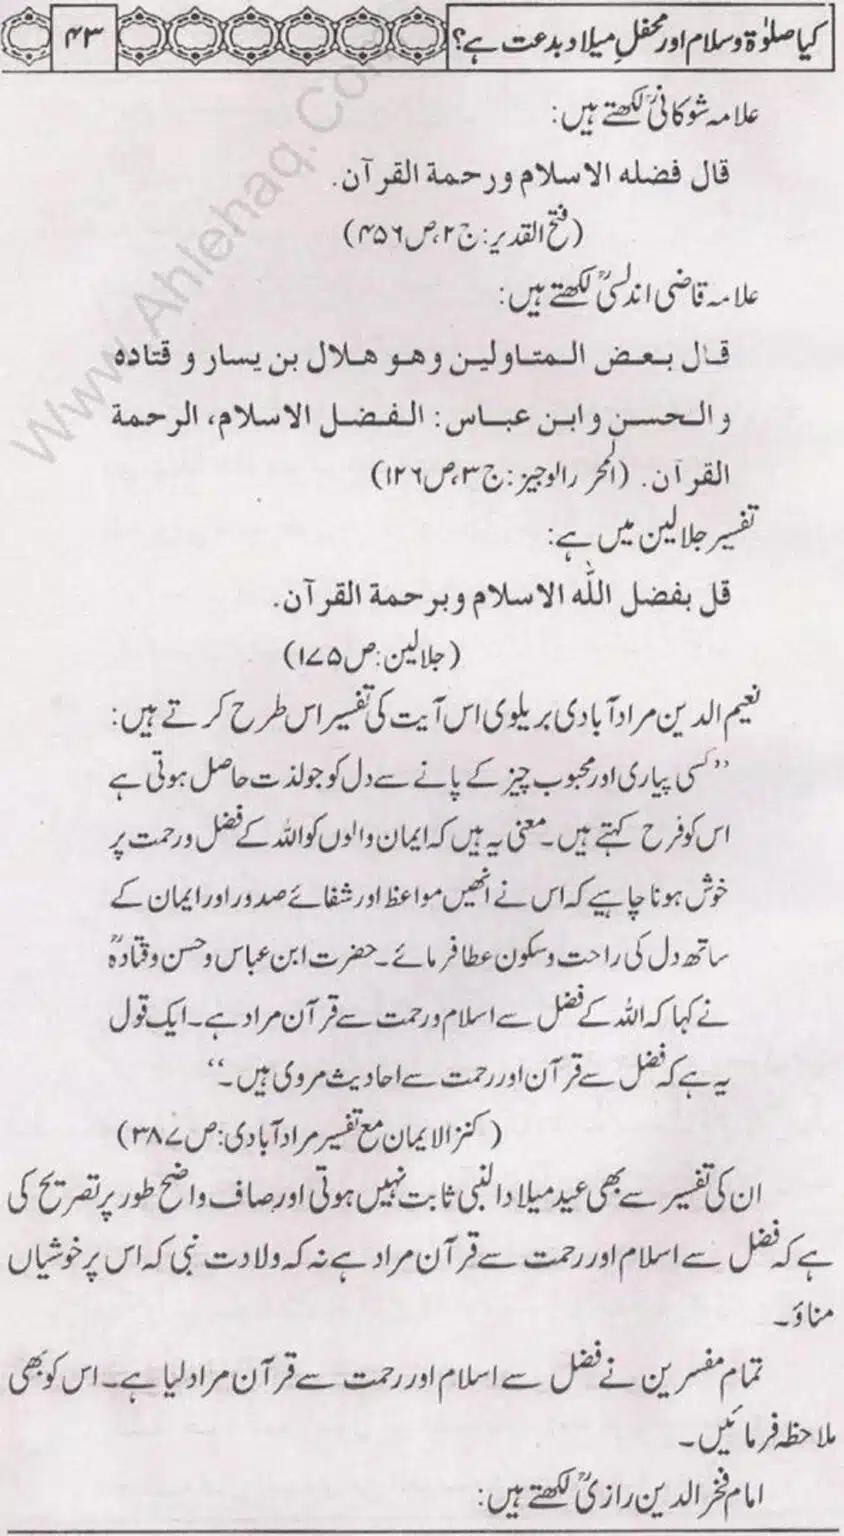 کیا صلوٰۃ وسلام اور محفلِ میلاد بدعت ہے؟
۴۳
علامہ شوکانیؒ لکھتے ہیں:
قال فضله الاسلام ورحمة القرآن.
(فتح القدیر: ج ۲، ص ۴۵۶)
علامہ قاضی اندلسیؒ لکھتے ہیں:
قال بعض المتاولین وهو هلال بن یسار و قتاده
والحسن وابن عباس: الفضل الاسلام، الرحمة
القرآن. (المحر رالوجیز: ج ۳، ص ۱۲۶)
تفسیر جلالین میں ہے:
قل بفضل اللّٰه الاسلام وبرحمة القرآن.
(جلالین: ص ۱۷۵)
نعیم الدین مراد آبادی بریلوی اس آیت کی تفسیر اس طرح کرتے ہیں:
’’کسی پیاری اور محبوب چیز کے پانے سے دل کو جو لذت حاصل ہوتی ہے
اس کو فرح کہتے ہیں۔ معنی یہ ہیں کہ ایمان والوں کو اللہ کے فضل ورحمت پر
خوش ہونا چاہیے کہ اس نے انھیں مواعظ اور شفائے صدور اور ایمان کے
ساتھ دل کی راحت وسکون عطا فرمائے۔ حضرت ابن عباس وحسن وقتادہؒ
نے کہا کہ اللہ کے فضل سے اسلام ورحمت سے قرآن مراد ہے۔ ایک قول
یہ ہے کہ فضل سے قرآن اور رحمت سے احادیث مروی ہیں۔‘‘
(کنز الایمان مع تفسیر مراد آبادی: ص ۳۸۷)
ان کی تفسیر سے بھی عید میلاد النبی ثابت نہیں ہوتی اور صاف واضح طور پر تصریح کی
ہے کہ فضل سے اسلام اور رحمت سے قرآن مراد ہے نہ کہ ولادت نبی کہ اس پر خوشیاں
مناؤ۔
تمام مفسرین نے فضل سے اسلام اور رحمت سے قرآن مراد لیا ہے۔ اس کو بھی
ملاحظہ فرمائیں۔
امام فخر الدین رازیؒ لکھتے ہیں:
Www.Ahlehaq.Com